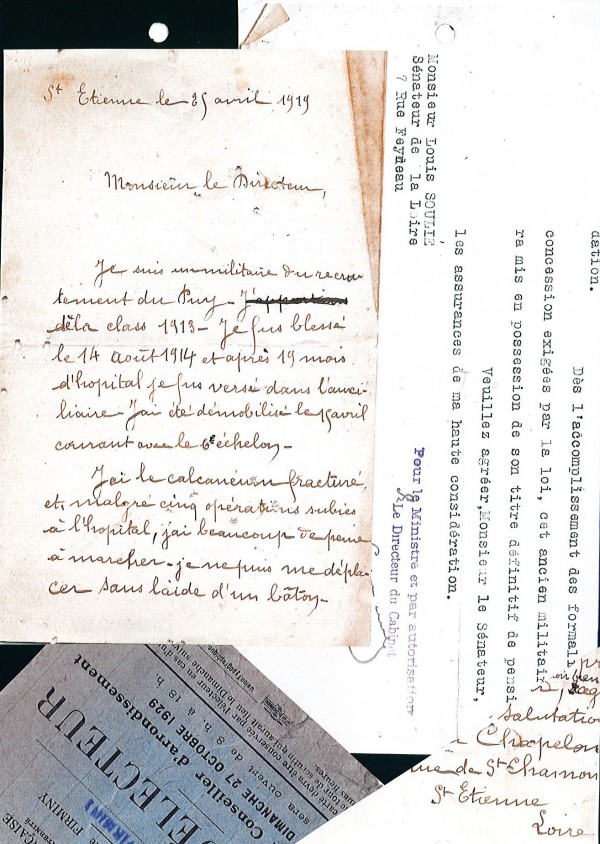 St Etienne le 25 avril 1919
Monsieur le Directeur,
Je suis un militaire du recru-
tement du Puy -
de la class 1913 - Je fus blessé
le 14 août 1914 et après 19 mois
d'hopital je fus versé dans l'auxi-
liaire - J'ai été démobilisé le 15 avril
courant avec le 6e échelon -
J'ai le calcanéum fracturé,
et, malgré cinq opérations subies
à l'hopital, j'ai beaucoup de peine
à marcher - je ne puis me dépla-
cer sans l'aide d'un bâton -
Monsieur Louis SOULIÉ
Sénateur de la Loire
7 Rue Feyneau
dation.
Dès l'accomplissement des formali
concession exigées par la loi, cet ancien militair
ra mis en possession de son titre définitif de pensi
Veuillez agréer, Monsieur le Sénateur,
les assurances de ma haute considération.
Pour le Ministre et par autorisation
Le Directeur du Cabinet
salutatio
Chapelon
de St Chamon
St Etienne
Loire
ÉLECTEUR
Conseiller d'arrondissement
DIMANCHE 27 OCTOBRE 1929
sera ouvert de 8 h. à 18 h.
FIRMINY